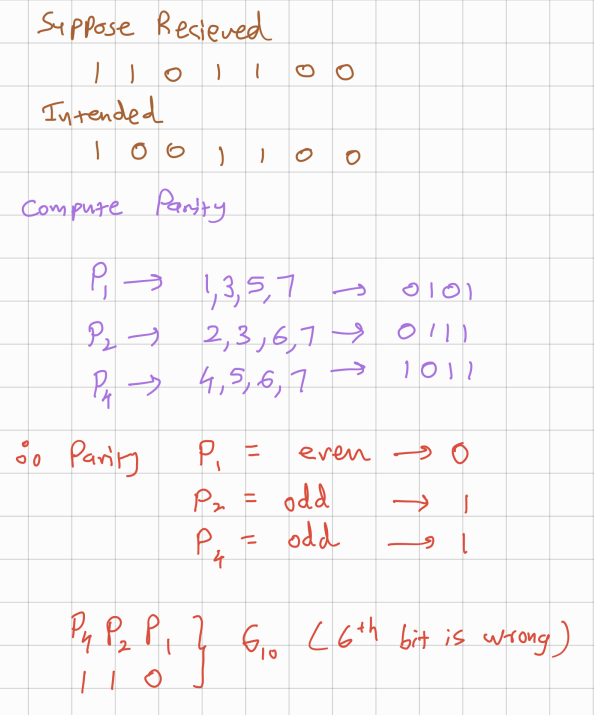 Suppose Recieved
1 1 0 1 1 0 0
Intended
1 0 0 1 1 0 0
Compute Parity
P₁ → 1,3,5,7 → 0101
P₂ → 2,3,6,7 → 0111
P₄ → 4,5,6,7 → 1011
∴ Parity P₁ = even → 0
P₂ = odd → 1
P₄ = odd → 1
P₄ P₂ P₁ } 6₁₀ (6th bit is wrong)
1 1 0